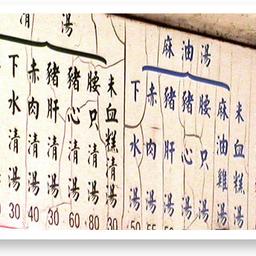 湯
下水清湯 30
赤肉清湯 40
豬肝清湯 30
豬心清湯 60
腰只清湯 80
米血糕清湯 30
麻油湯
下水湯
赤肉湯
豬肝湯
豬心湯
腰只湯
麻油雞湯
米血糕湯